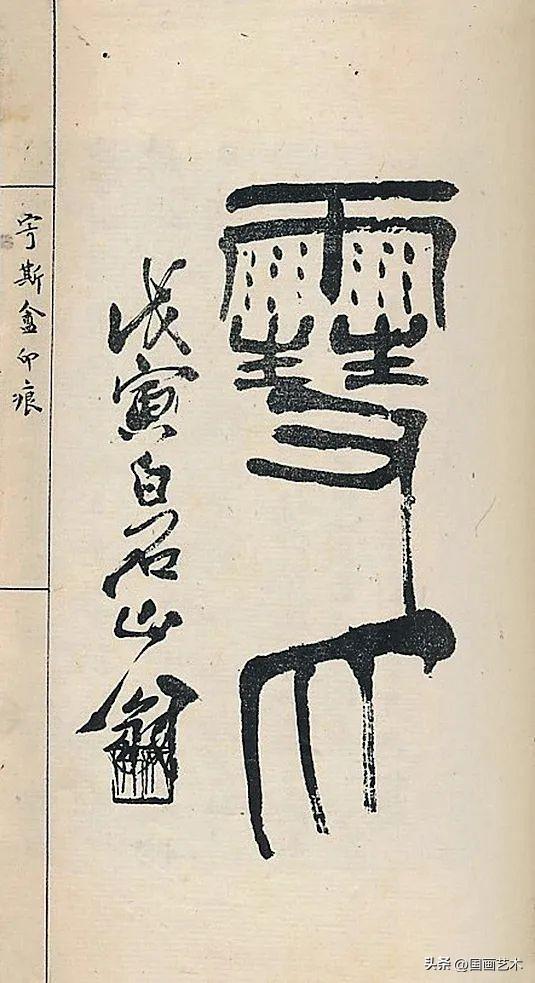 雪爪
戊寅白石山翁
宁斯盦印痕
头条 @国画艺术